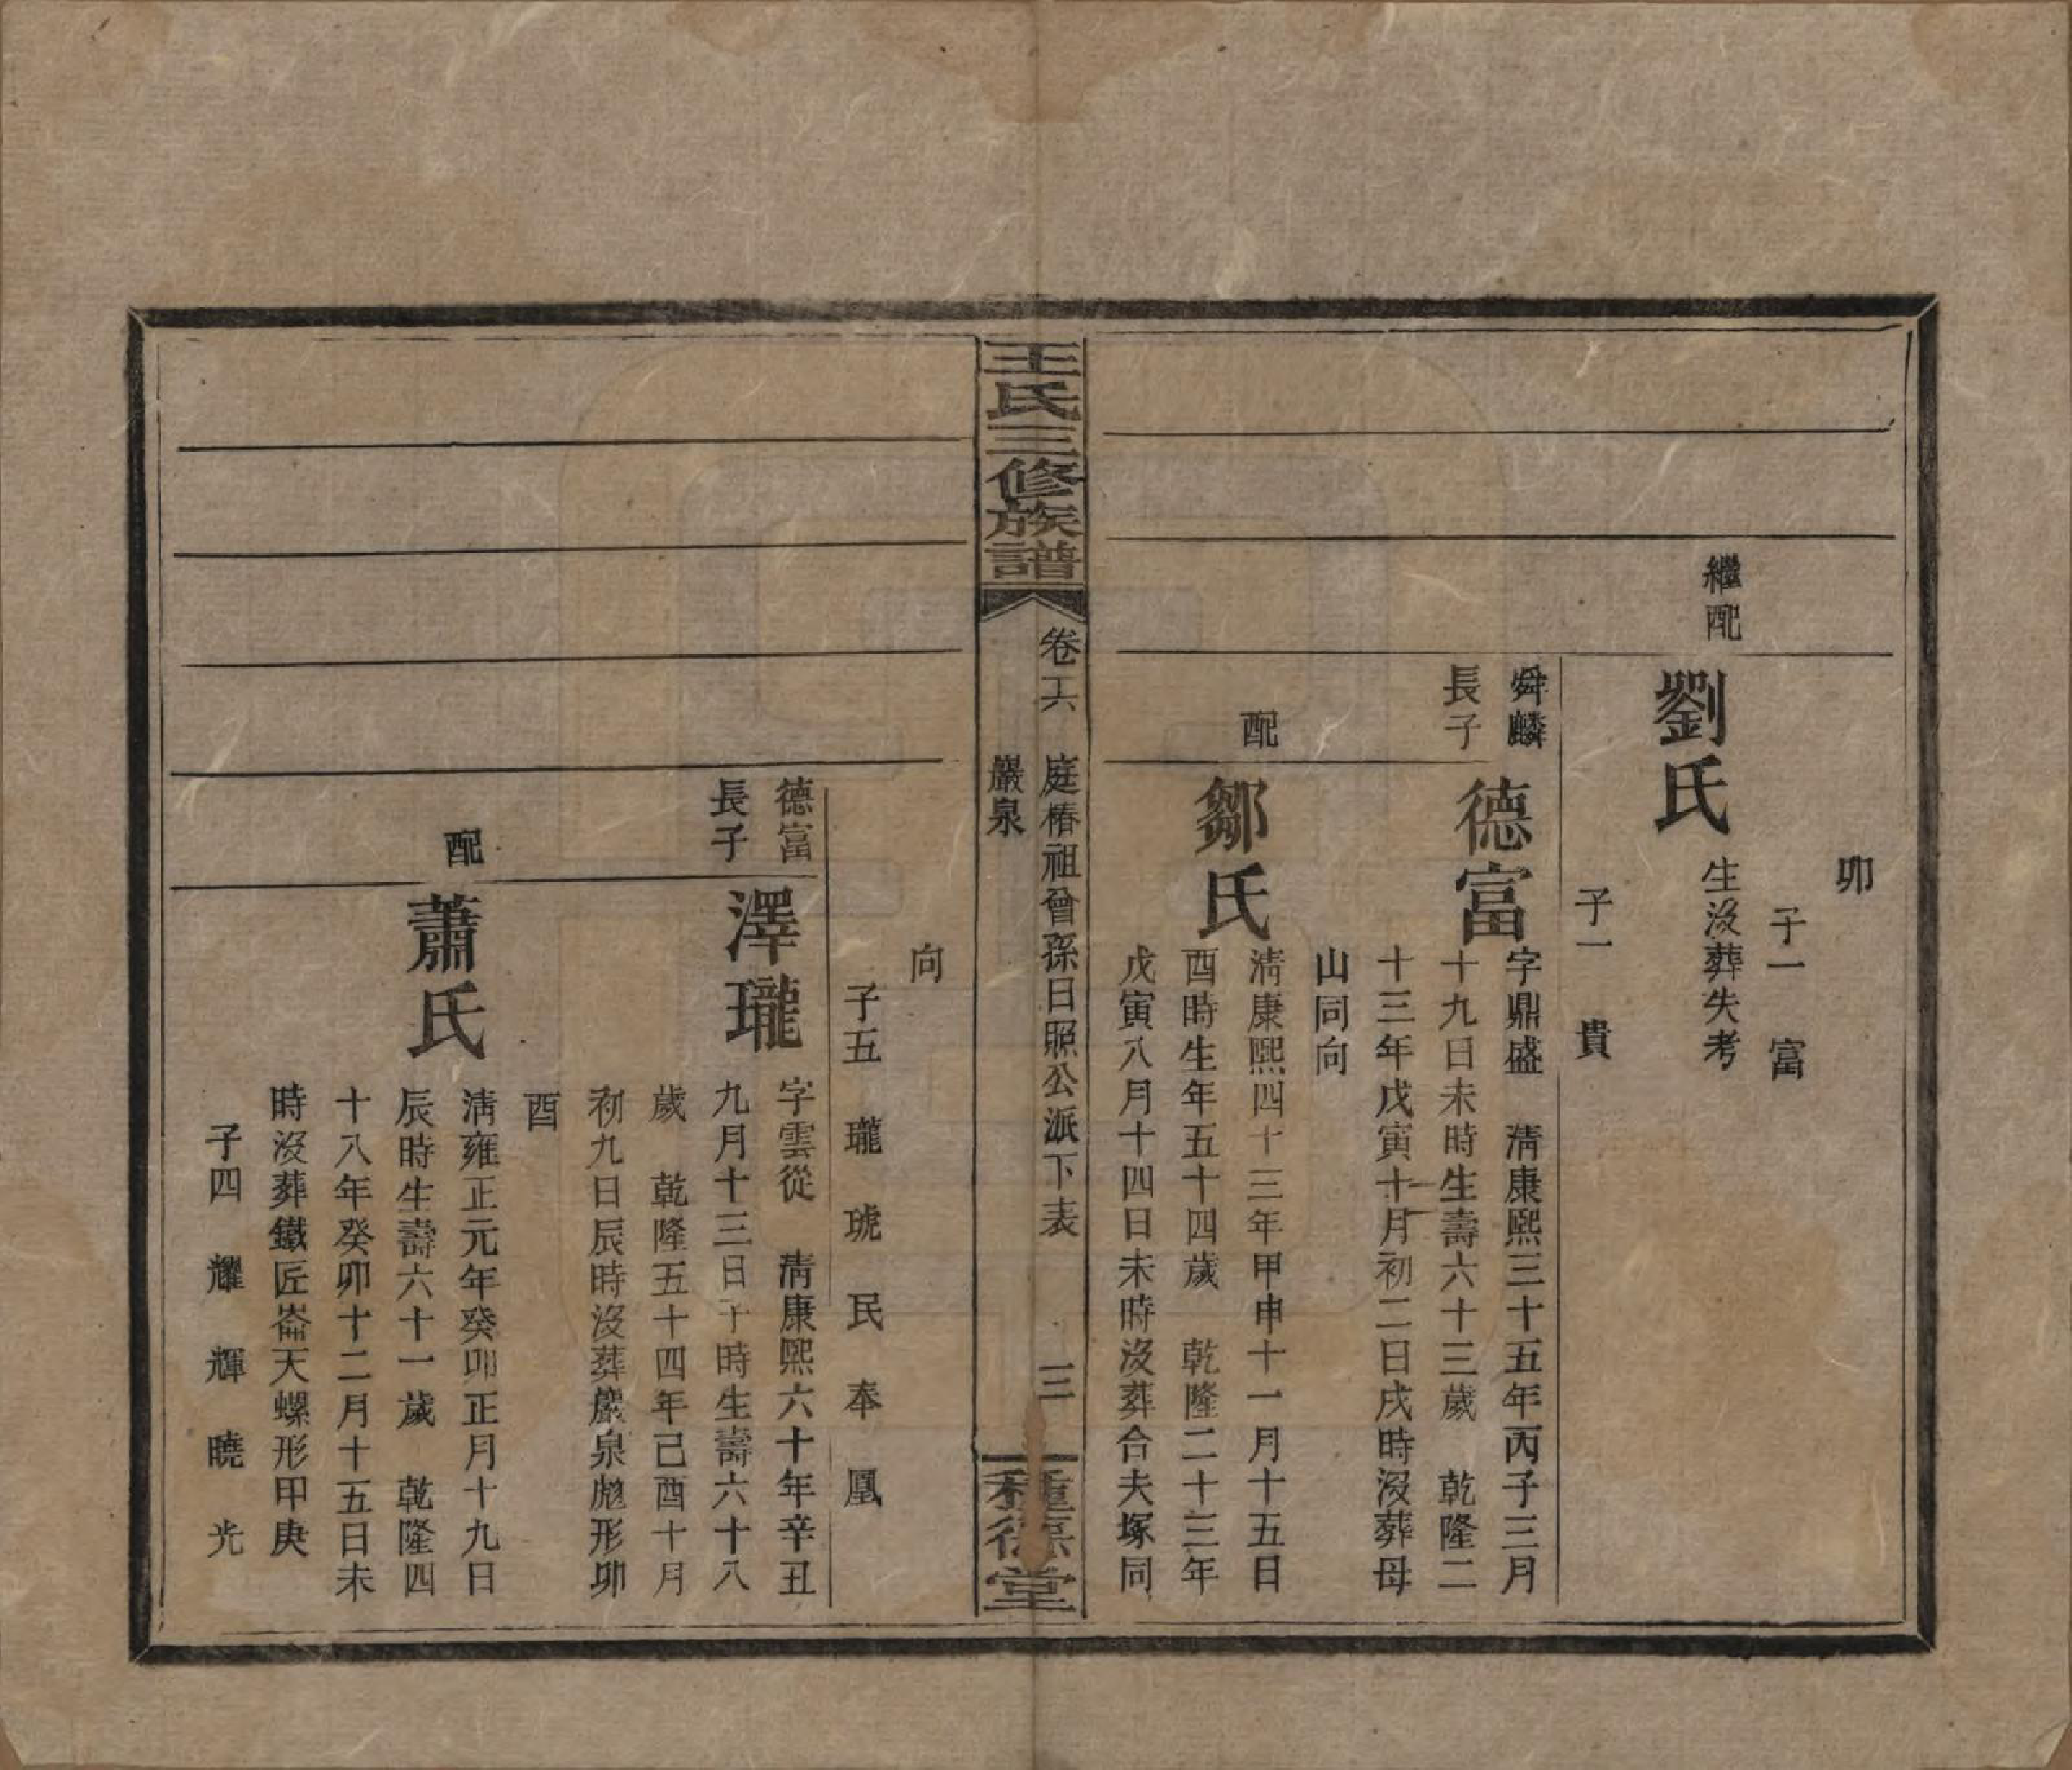 卯
子一　富
繼配
劉氏　生沒葬失考
子一　貴
舜麟
長子
德富　字鼎盛　淸康熙三十五年丙子三月
十九日未時生壽六十三歲　乾隆二
十三年戊寅十月初二日戌時沒葬母
山同向
配
鄒氏　淸康熙四十三年甲申十一月十五日
酉時生年五十四歲　乾隆二十三年
戊寅八月十四日未時沒葬合夫塚同
王氏三修族譜
卷六　庭椿祖曾孫日照公派下表　三
巖泉
種德堂
向
子五　瓏　琥　民　奉　鳳
德富
長子
澤瓏　字雲從　淸康熙六十年辛丑
九月十三日子時生壽六十八
歲　乾隆五十四年己酉十月
初九日辰時沒葬巖泉彪形卯
酉
配
蕭氏　淸雍正元年癸卯正月十九日
辰時生壽六十一歲　乾隆四
十八年癸卯十二月十五日未
時沒葬鐵匠崙天螺形甲庚
子四　耀　輝　曉　光